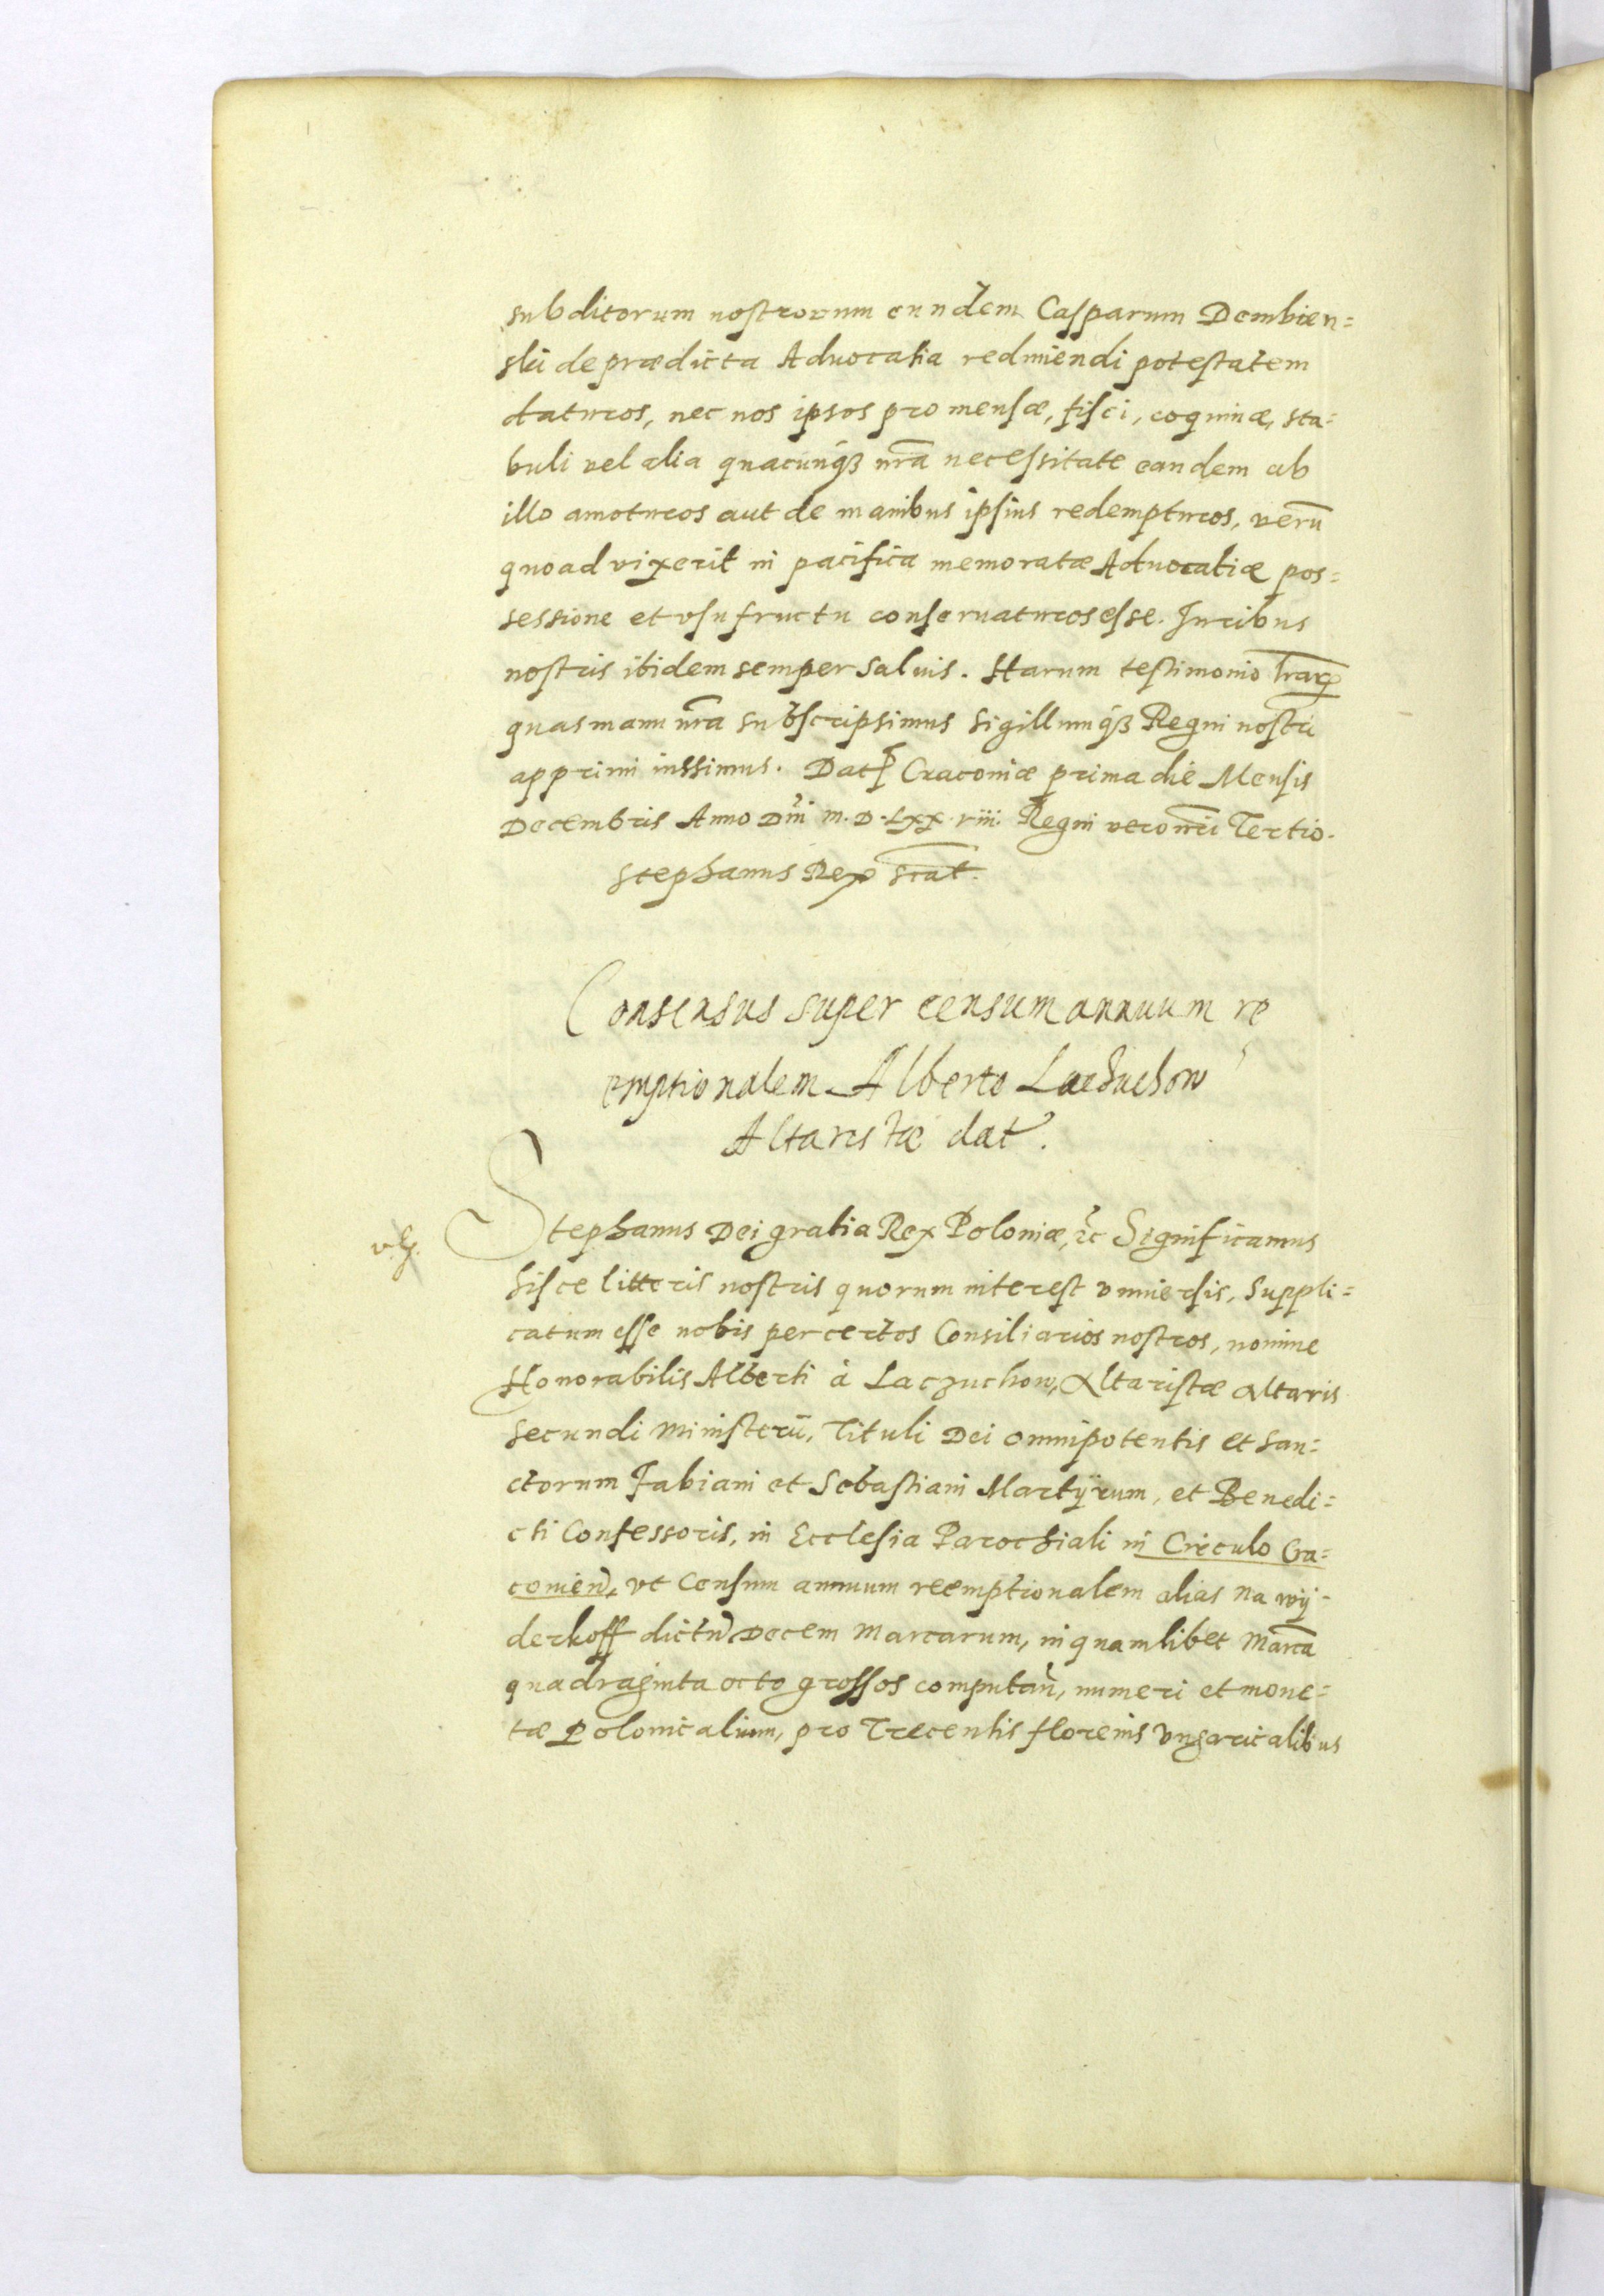 subditorum nostrorum eundem Casparum Dembien=
ski de prædicta Aduocatia redimendi potestatem
daturos, nec nos ipsos pro mensæ, fisci, coquinæ, sta=
buli vel alia quacunq₃ nr̃a necessitate eandem ab
illo amoturos aut de manibus ipsius redempturos, verũ
quoad vixerit in pacifica memoratæ Aduocatiæ pos=
sessione et vsufructu conseruaturos esse. Iuribus
nostris ibidem semper saluis. Harum testimonio l̃rarꝝ
quas manu nr̃a subscripsimus sigillumq₃ Regni nostri
apprimi iussimus. Dat̃ Cracouiæ prima die Mensis
Decembris Anno Dñi M.D.LXX.viii. Regni vero nr̃i Tertio.
Stephanus Rex sc̃at.
Consensus super censum annuum re
emptionalem Alberto Laczuchow
Altaristæ dat̃.
Stephanus Dei gratia Rex Poloniæ, &c Significamus
hisce litteris nostris quorum interest vniuersis, suppli=
catum esse nobis per certos Consiliarios nostros, nomine
Honorabilis Alberti à Laczuchow, Altaristæ Altaris
secundi Ministerij, Tituli Dei omnipotentis et San=
ctorum Fabiani et Sebastiani Martÿrum, et Benedi=
cti Confessoris, in Ecclesia Parochiali in Circulo Cra=
couien̄, vt Censum annuum reemptionalem alias na wÿ=
derkoff dictũ Decem Marcarum, in quamlibet Marcã
quadraginta octo grossos computan̄, numeri et mone=
tæ Polonicalium, pro Trecentis florenis Vngaricalibus